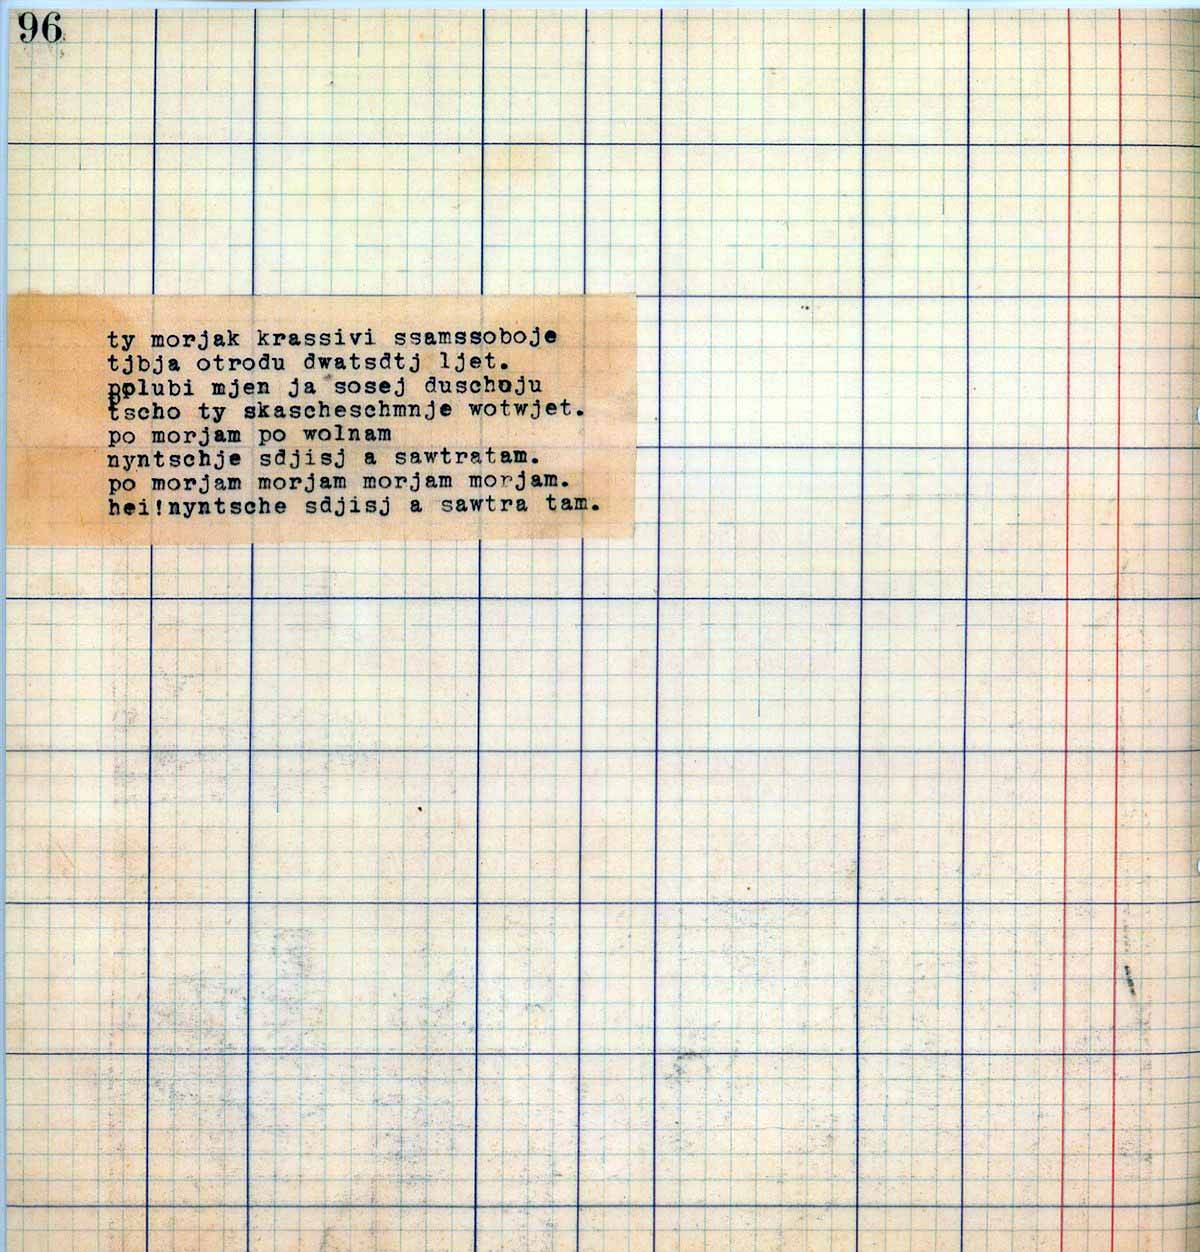 96
ty morjak krassivi ssamssoboje
tjbja otrodu dwatsdtj ljet.
polubi mjen ja sosej duschoju
tscho ty skascheschmnje wotwjet.
po morjam po wolnam
nyntschje sdjisj a sawtratam.
po morjam morjam morjam morjam.
hei!nyntsche sdjisj a sawtra tam.